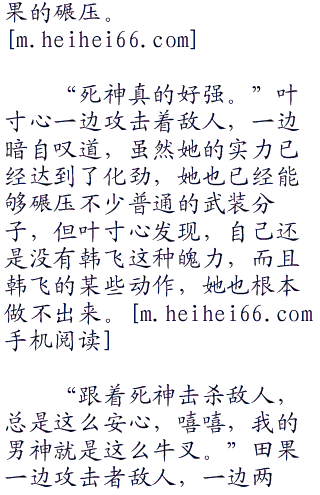 果的碾压。
[m.heihei66.com]
“死神真的好强。”叶
寸心一边攻击着敌人，一边
暗自叹道，虽然她的实力已
经达到了化劲，她也已经能
够碾压不少普通的武装分
子，但叶寸心发现，自己还
是没有韩飞这种魄力，而且
韩飞的某些动作，她也根本
做不出来。[m.heihei66.com
手机阅读]
“跟着死神击杀敌人，
总是这么安心，嘻嘻，我的
男神就是这么牛叉。”田果
一边攻击者敌人，一边两